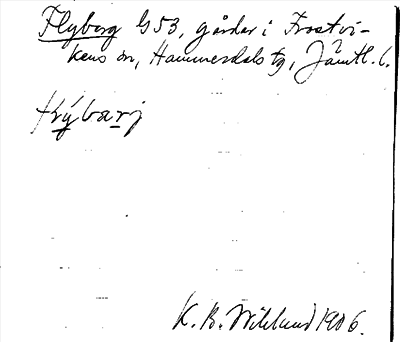 Flyberg G53, gårdar i Frostvi-
kens sn, Hammerdals tg, Jämtl. l.
K. B. Wiklund 1906.